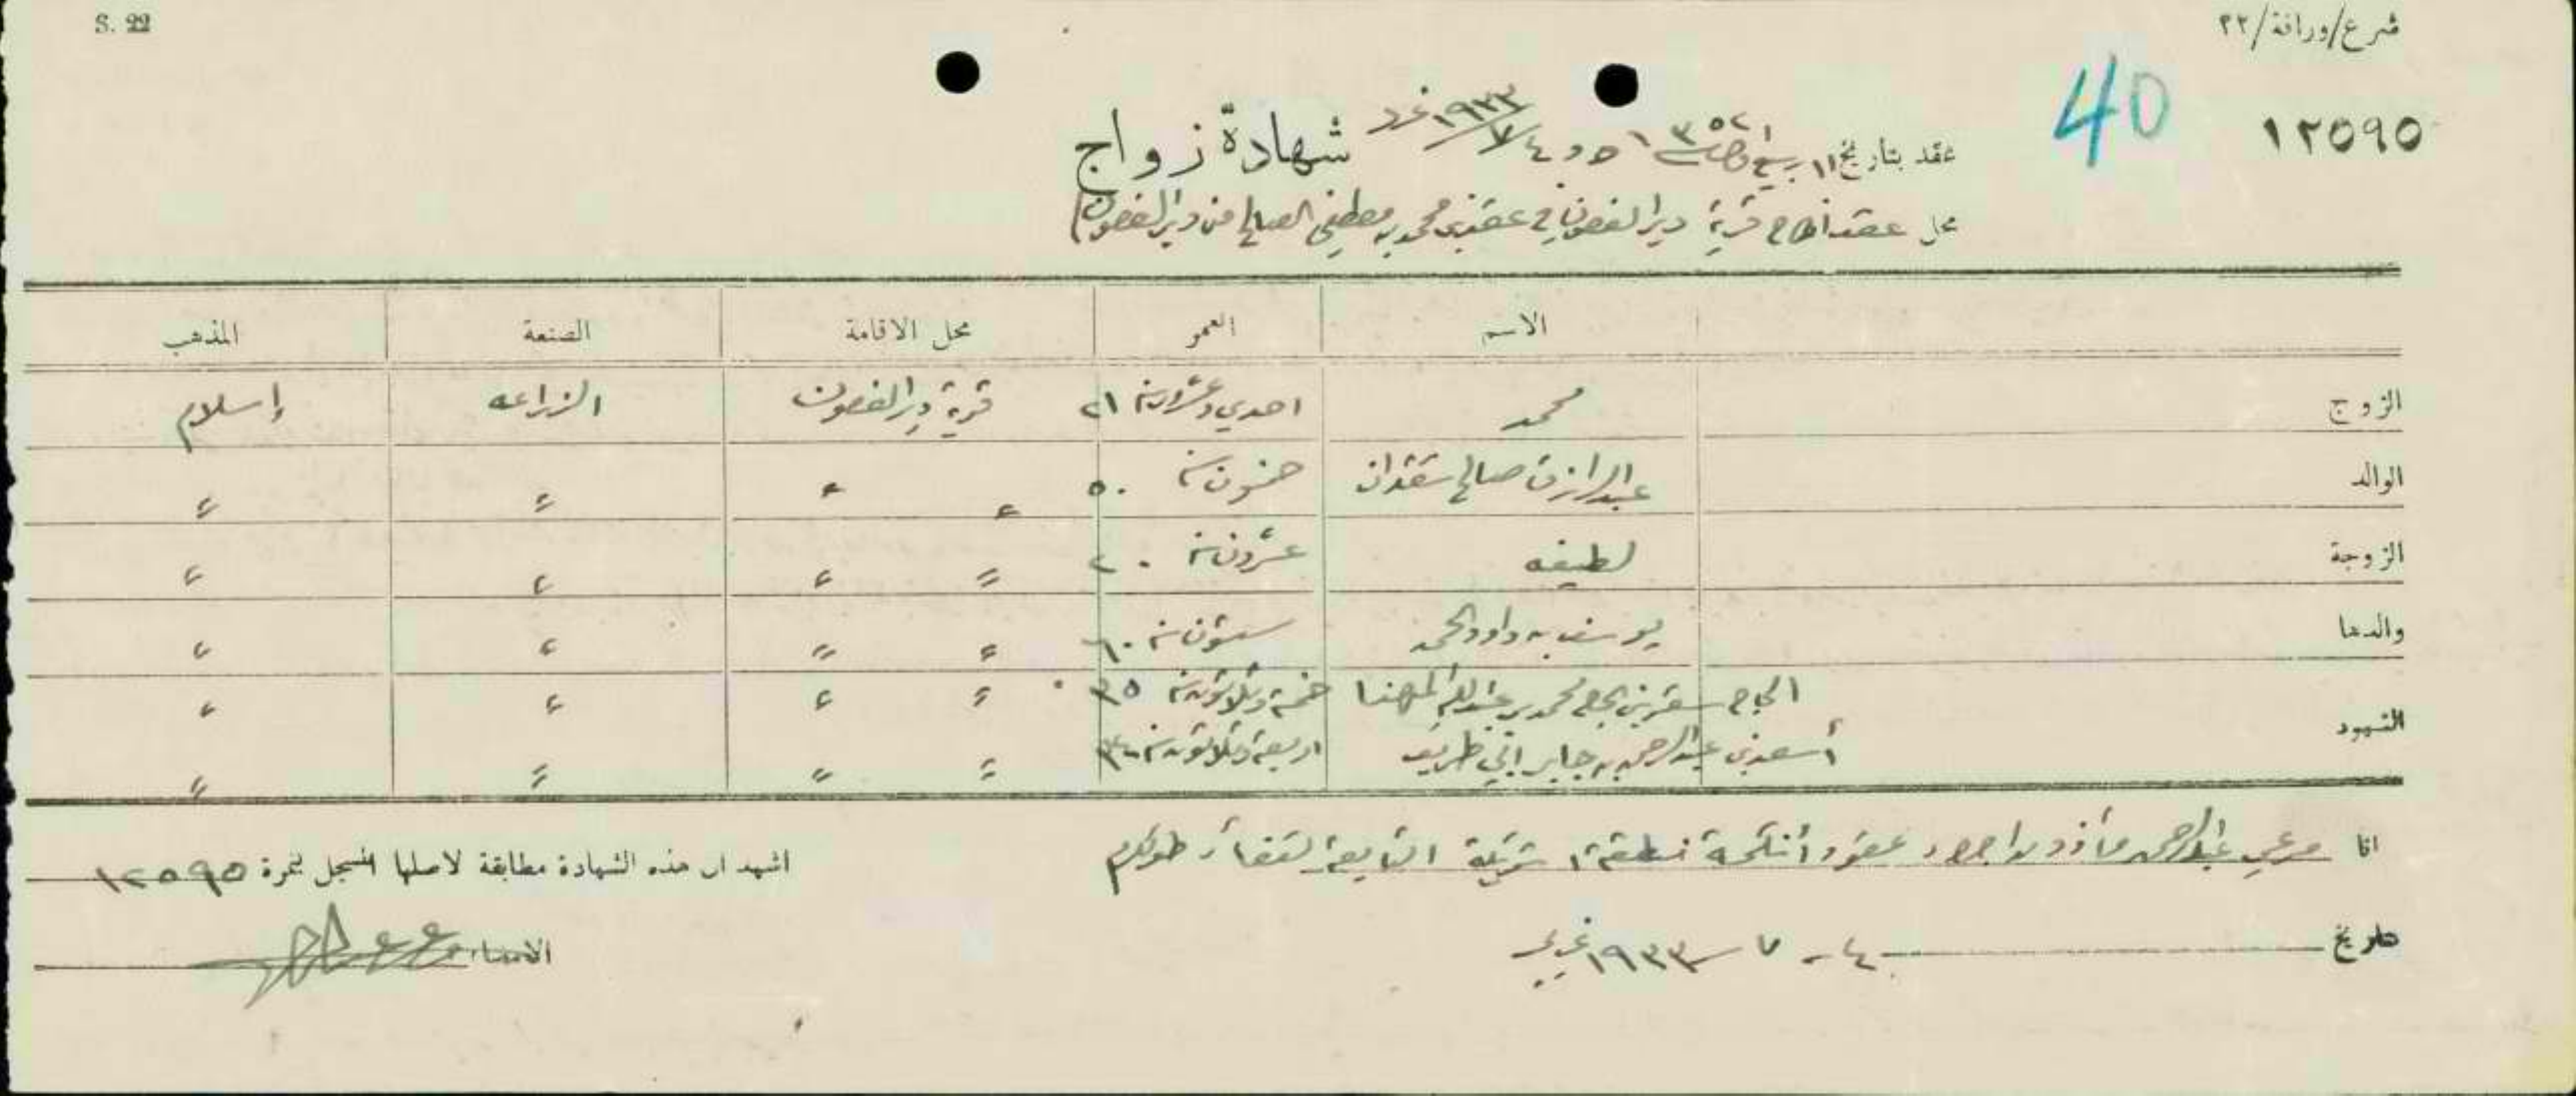 S. 22
شرع/وراقة/٢٢
40
١٢٥٩٥
شهادة زواج
عقد بتاريخ ١١ ربيع ١٣٥٢ و ٤ / ٧ / ١٩٣٣
محل عقد قرية دير الغصون في محمد بن مصطفى الصالح من دير الغصون
الاسم العمر محل الاقامة الصنعة المذهب
الزوج محمد احدى وعشرون سنة ٢١ قرية دير الغصون الزراعه إسلام
الوالد عبدالرازق صالح خمسون سنة ٥٠ " " " "
الزوجة لطيفه عشرون سنة ٢٠ " " " "
والدها يوسف بن داود الحمد ستون سنة ٦٠ " " " "
الشهود الحاج بن الحاج محمد بن عبدالله المهنا خمسة وثلاثون سنة ٣٥ " " " "
أسعد بن عبدالرحمن بن جابر ابي ظريف اربعة وثلاثون سنة ٣٤ " " " "
انا مرعي عبدالرحمن مأذون عقود أنكحة التابعة لقضاء طولكرم
اشهد ان هذه الشهادة مطابقة لاصلها المسجل بنمرة ١٢٥٩٥
تاريخ ٤ - ٧ - ١٩٣٣
الامضاء